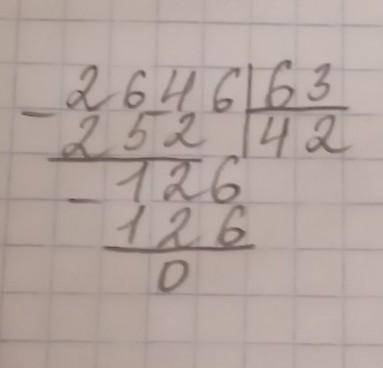 - 2646|63
252 |42
- 126
126
0